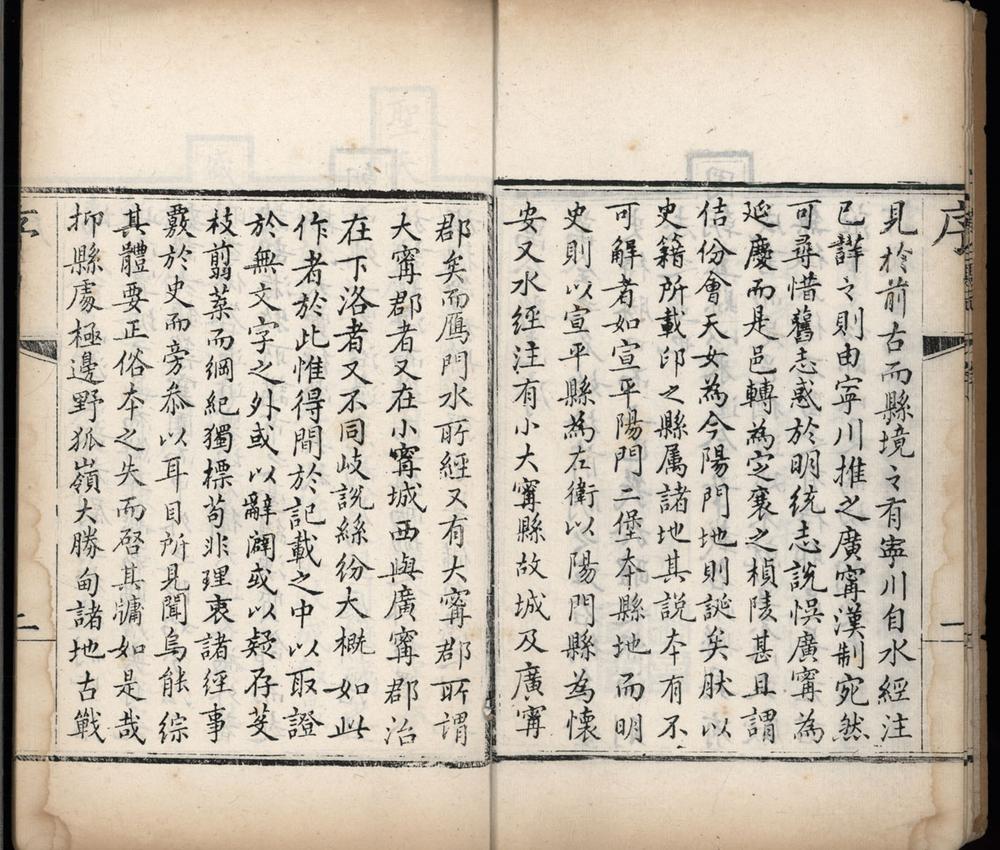 見於前古而縣境之有寧川自水經注
已詳之則由寧川推之廣寧漢制宛然
可尋惜舊志惑於明統志說悞廣寧為
延慶而是邑轉為定襄之楨陵甚且謂
佶份會天女為今陽門地則誕矣肰以
史籍所載印之縣属諸地其說夲有不
可解者如宣平陽門二堡夲縣地而明
史則以宣平縣為左衛以陽門縣為懷
安又水經注有小大寧縣故城及廣寧
郡矣而鴈門水所經又有大寧郡所謂
大寧郡者又在小寧城西與廣寧郡治
在下洛者又不同岐說絲紛大槪如此
作者於此惟得間於記載之中以取證
於無文字之外或以辭闢或以疑存芟
枝翦葉而綱紀獨標苟非理衷諸經事
覈於史而旁叅以耳目所見聞烏能綜
其體要正俗夲之失而啓其牗如是哉
抑縣處極邊野狐嶺大勝甸諸地古戰
序
一
二